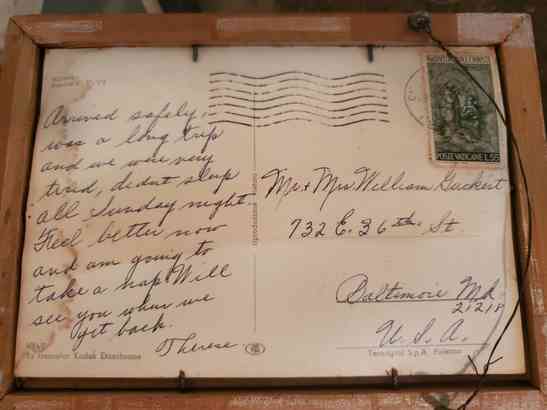 Arrived safely,
was a long trip
and we were very
tired, didnt sleep
all Sunday night.
Feel better now
and am going to
take a nap. Will
see you when we
get back.
Therese
da transcolor Kodak Ektachrome
POSTE VATICANE L. 55
Mr. & Mrs William Guckert
732 E. 36th St.
Baltimore Md
21218
U.S.A.
S.p.A. Palermo